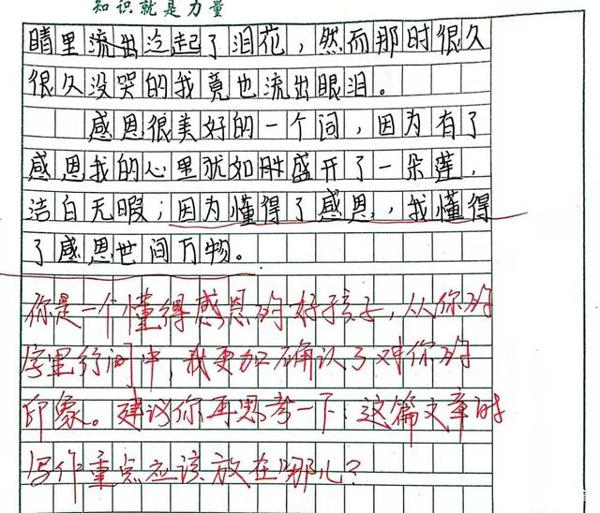 知识就是力量
睛里流出泛起了泪花，然而那时很久
很久没哭的我竟也流出眼泪。
感恩很美好的一个词，因为有了
感恩我的心里犹如胜盛开了一朵莲，
洁白无暇；因为懂得了感恩，我懂得
了感恩世间万物。
你是一个懂得感恩的好孩子，从你的
字里行间中，我更加确认了对你的
印象。建议你再思考一下：这篇文章的
写作重点应该放在哪儿？